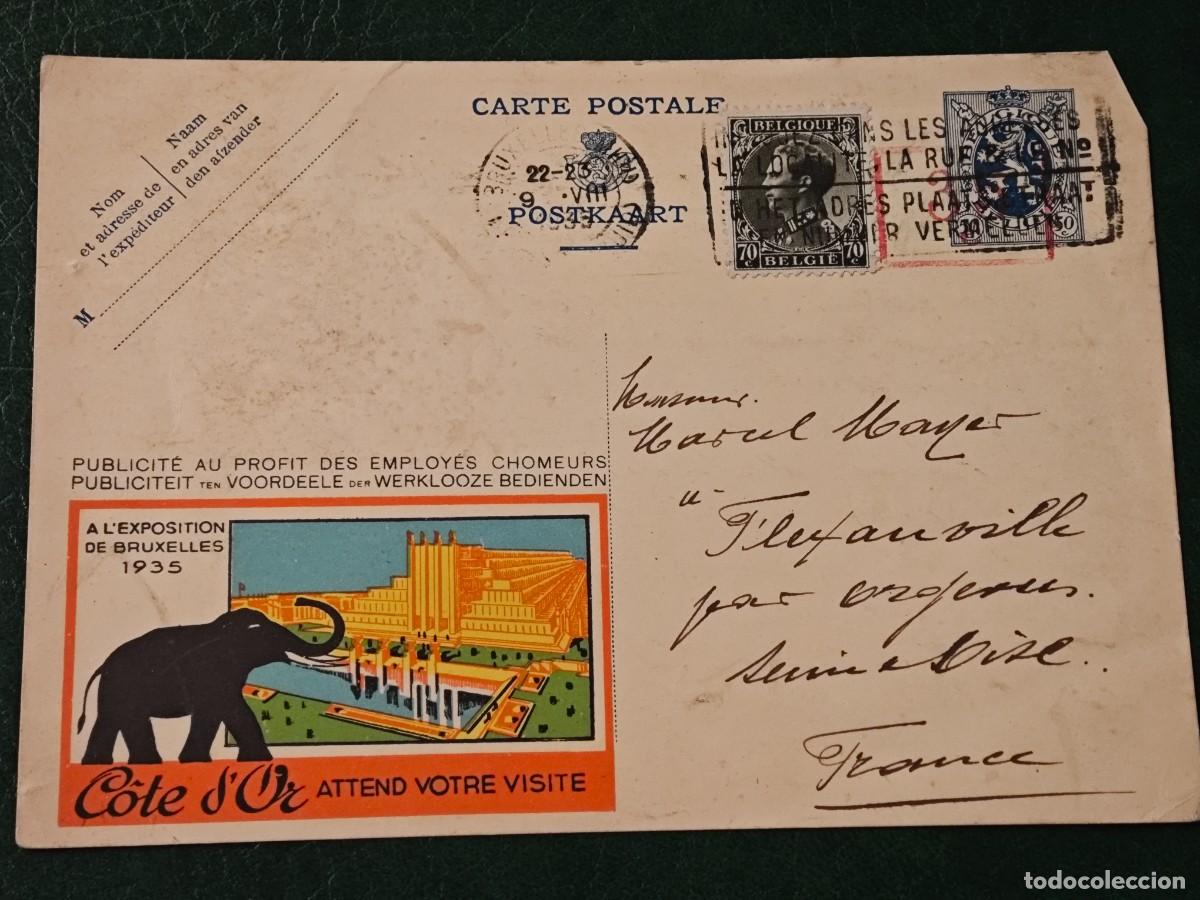 CARTE POSTALE
POSTKAART
Nom
et adresse de
l'expéditeur
Naam
en adres van
den afzender
M
BRUXELLES
22-23
9 VIII
LES
LA LOCALITE, LA RUE No
HET ADRES PLAATS
BELGIQUE
70 c 70 c
BELGIË
50
PUBLICITÉ AU PROFIT DES EMPLOYÉS CHOMEURS
PUBLICITEIT TEN VOORDEELE DER WERKLOOZE BEDIENDEN
A L'EXPOSITION
DE BRUXELLES
1935
Côte d'Or ATTEND VOTRE VISITE
Monsieur
Marcel Mayer
à
Flexanville
par Orgerus.
Seine & Oise..
France
todocoleccion